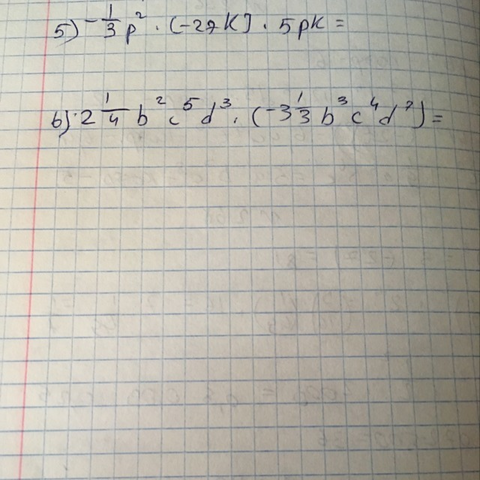 5) -1/3 p² · (-27k) · 5pk =
6) 2 1/4 b² c⁵ d³ · (-3 1/3 b³ c⁴ d⁷) =